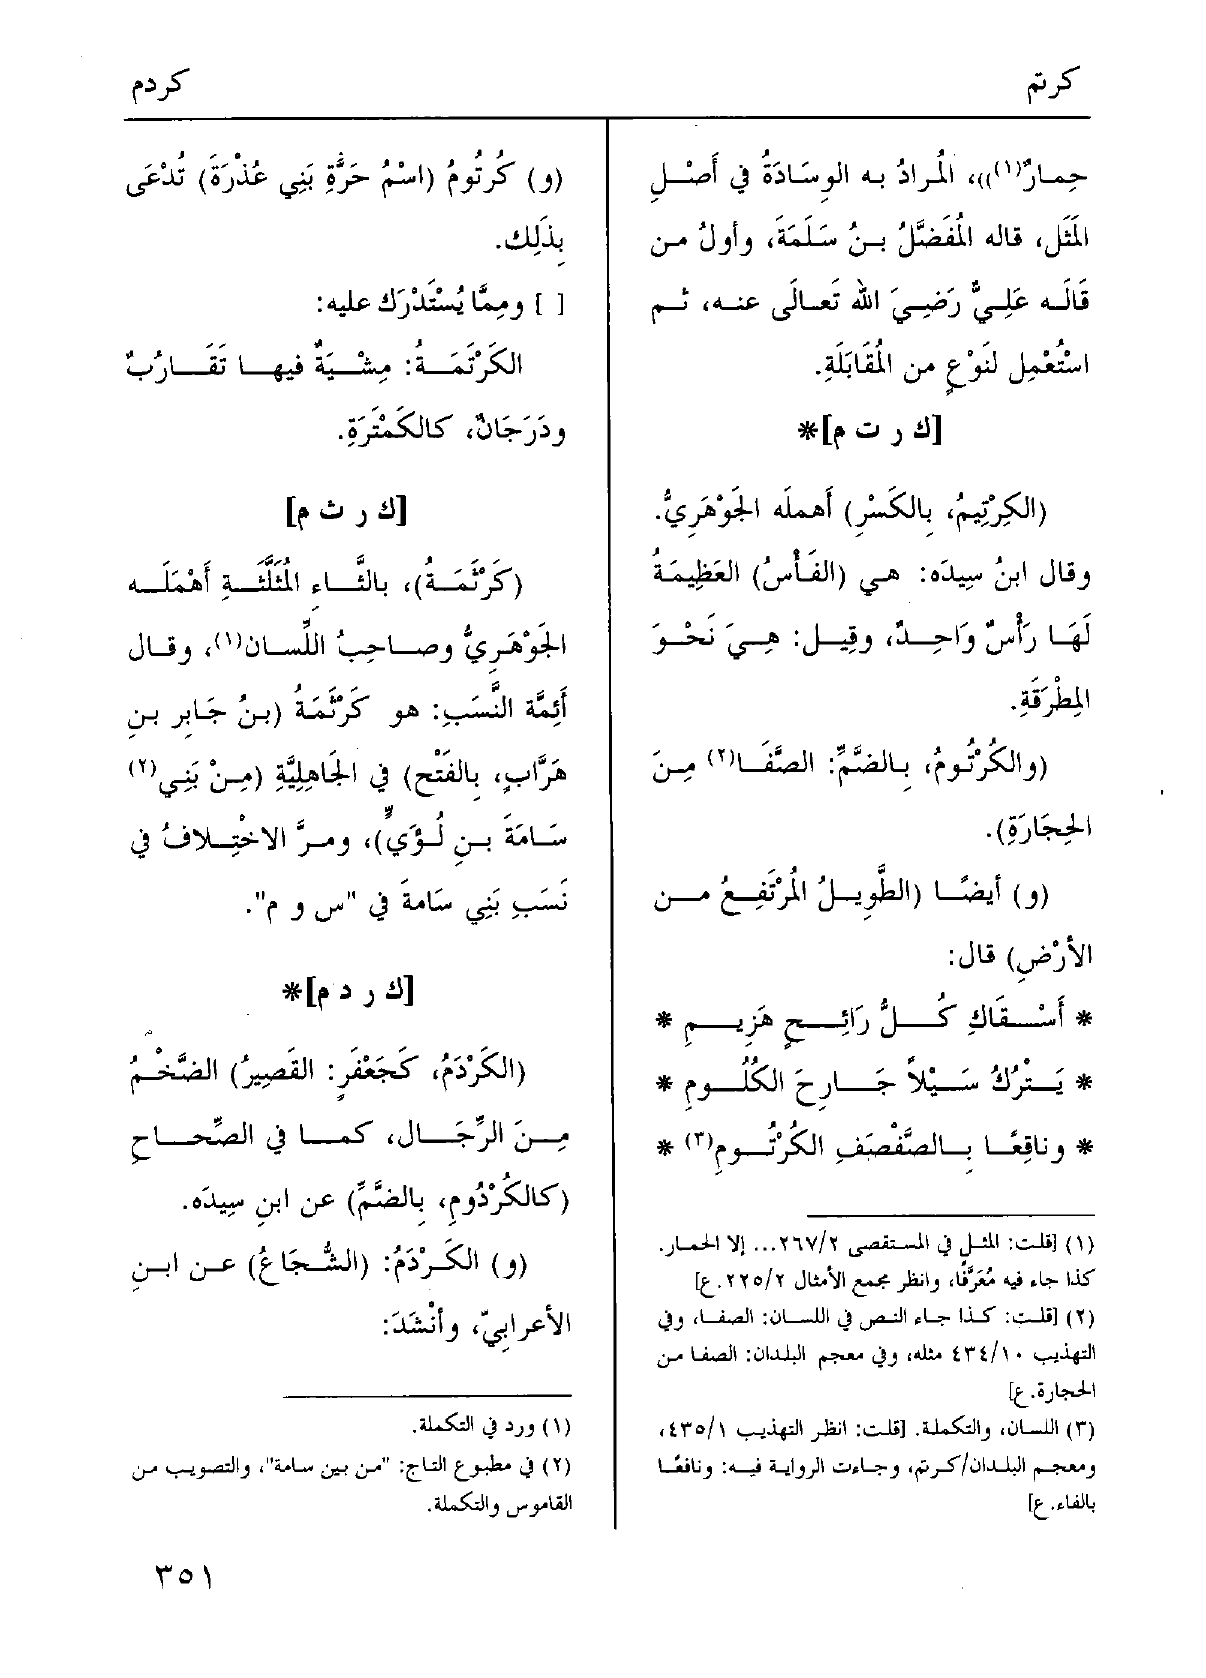 كرتم
كردم
حِمارٌ(١)))، المُرادُ به الوِسَادَةُ في أَصْلِ
المَثَل، قاله المُفَضَّلُ بنُ سَلَمَة، وأولُ من
قَالَه عَلِيٌّ رَضِيَ الله تَعالَى عنه، ثم
اسْتُعْمِل لنَوْعٍ من المُقَابَلَةِ.
[ك ر ت م]*
(الكِرْتِيمُ، بِالكَسْرِ) أهمله الجَوْهَرِيُّ.
وقال ابنُ سِيدَه: هي (الفَأْسُ) العَظِيمَةُ
لَهَا رَأْسٌ وَاحِدٌ، وقِيل: هِيَ نَحْوَ
المِطْرَقَةِ.
(والكُرْتُومُ، بالضَّمِّ: الصَّفَا(٢) مِنَ
الحِجَارَةِ).
(و) أيضًا (الطَّوِيلُ المُرْتَفِعُ من
الأَرْضِ) قال:
* أَسْقَاكِ كُلُّ رَائِحٍ هَزِيمِ *
* يَتْرُكُ سَيْلاً جَارِحَ الكُلُومِ *
* وناقِعًا بِالصَّفْصَفِ الكُرْتُومِ(٣) *
(١) [قلت: المثل في المستقصى ٢٦٧/٢... إلا الحمار.
كذا جاء فيه مُعَرَّفًا، وانظر مجمع الأمثال ٢٢٥/٢.ع]
(٢) [قلت: كذا جاء النص في اللسان: الصفا، وفي
التهذيب ٤٣٤/١٠ مثله، وفي معجم البلدان: الصفا من
الحجارة.ع]
(٣) اللسان، والتكملة. [قلت: انظر التهذيب ٤٣٥/١،
ومعجم البلدان/كرتم، وجاءت الرواية فيه: ونافعًا
بالفاء.ع]
(و) كُرتُومُ (اسْمُ حَرَّةِ بَنِي عُذْرَةَ) تُدْعَى
بِذَلِك.
[ ] ومِمَّا يُسْتَدْرَك عليه:
الكَرْتَمَةُ: مِشْيَةٌ فيها تَقَارُبٌ
ودَرَجَانٌ، كالكَمْتَرَةِ.
[ك ر ث م]
(كَرْثَمَةُ)، بالثَّاء المُثَلَّثَةِ أَهْمَلَه
الجَوْهَرِيُّ وصاحِبُ اللِّسان(١)، وقال
أَئِمَّة النَّسَبِ: هو كَرْثَمَةُ (بنُ جَابِر بنِ
هَرَّابٍ، بِالفَتْحِ) في الجَاهِلِيَّةِ (مِنْ بَنِي(٢)
سَامَةَ بنِ لُؤَيٍّ)، ومرَّ الاخْتِلافُ في
نَسَبِ بَنِي سَامةَ في "س و م".
[ك ر د م]*
(الكَرْدَمُ، كَجَعْفَرٍ: القَصِيرُ) الضَّخْمُ
مِنَ الرِّجَال، كما في الصِّحاحِ
(كالكُرْدُومِ، بِالضَّمِّ) عن ابنِ سِيدَه.
(و) الكَرْدَمُ: (الشُّجَاعُ) عن ابنِ
الأعرابيّ، وأَنْشَدَ:
(١) ورد في التكملة.
(٢) في مطبوع التاج: "من بين سامة"، والتصويب من
القاموس والتكملة.
٣٥١